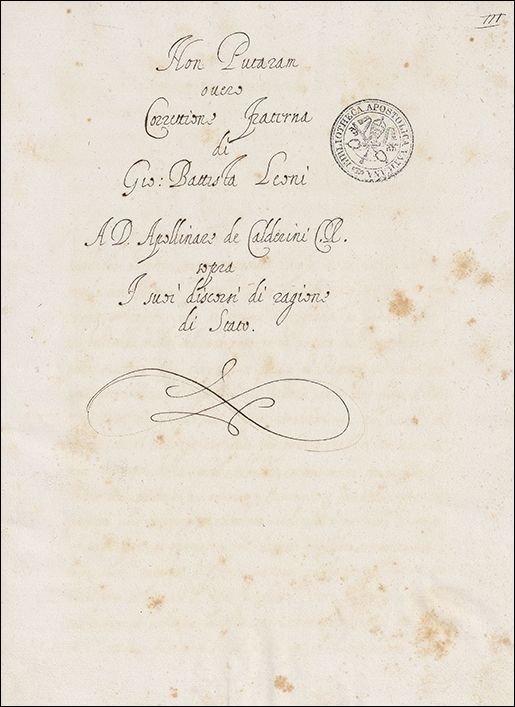 111
Non Putaram
overo
Correttione Fraterna
di
Gio: Battista Leoni
A D. Apollinare de Calderini C.R.
sopra
I suoi discorsi di ragione
di Stato.
BIBLIOTHECA APOSTOLICA VATICANA